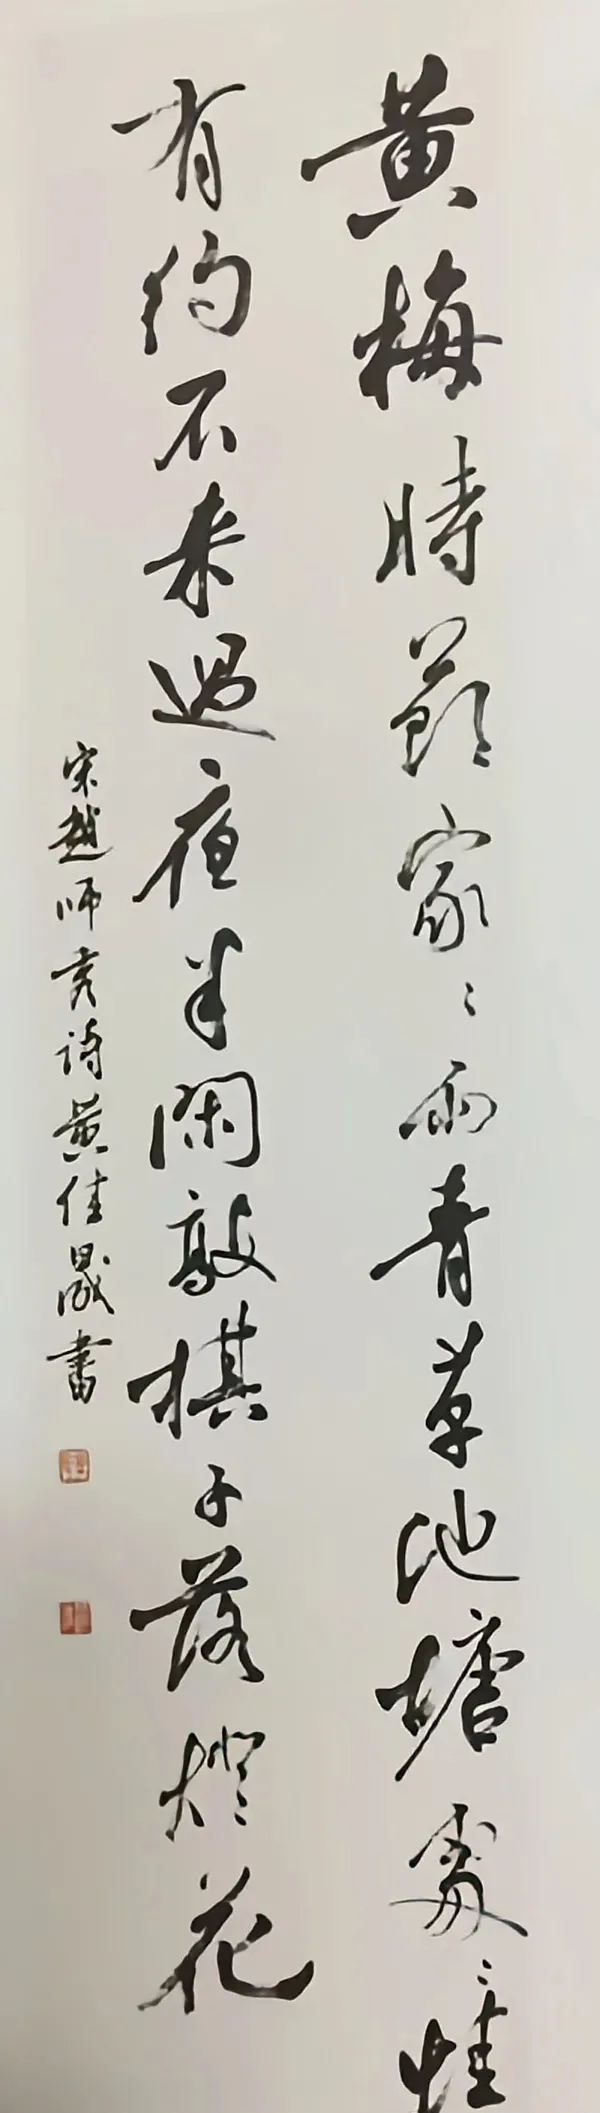 黄梅時節家〻雨青草池塘處〻蛙
有約不来過夜半閑敲棋子落燈花
宋趙師秀诗黄佳晟書